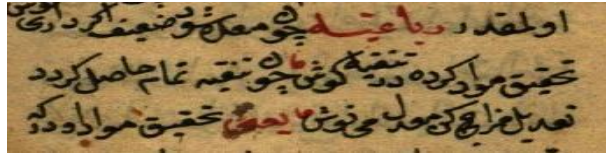 او لمقدر رباعیه چون معده شود ضعیف اگر داری
تحقیق مواد کرده در تنقیه کوش با چون تنقیه تمام حاصل گردد
تعدیل مزاج کن معدل می نوش با یعنی تحقیق مواد او در که